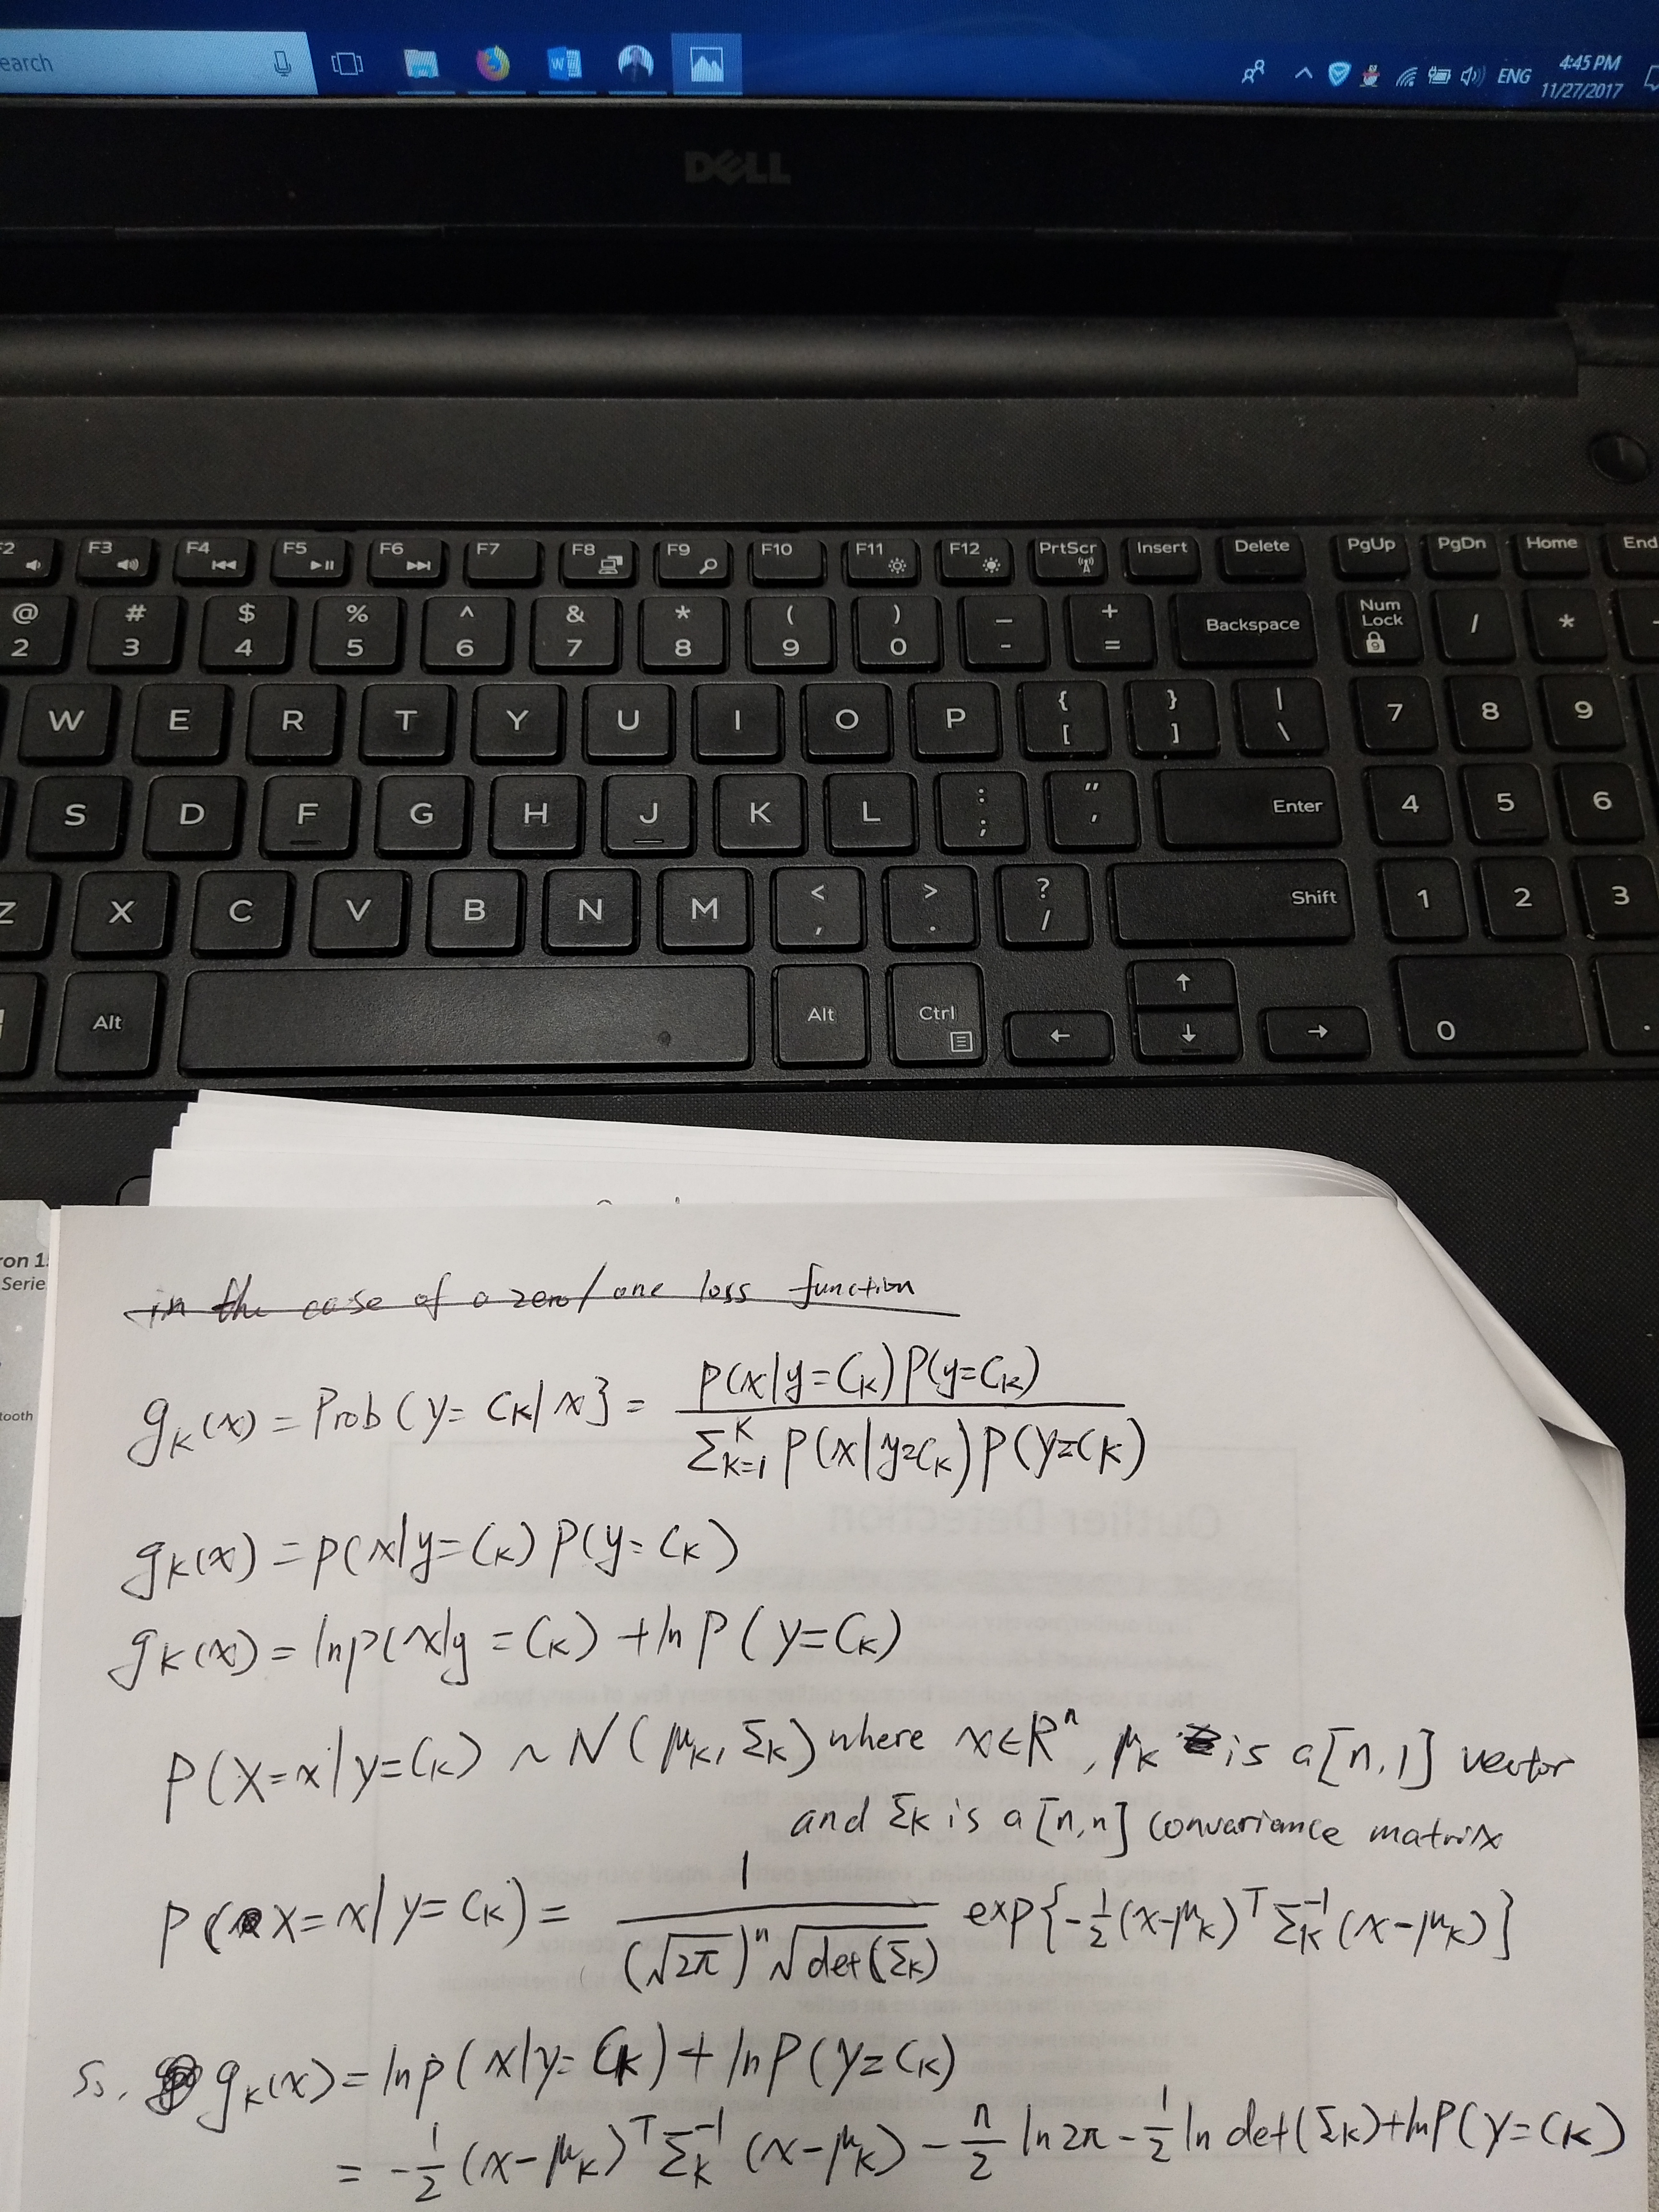 earch
ENG
4:45 PM
11/27/2017
DELL
F2 F3 F4 F5 F6 F7 F8 F9 F10 F11 F12 PrtScr Insert Delete PgUp PgDn Home End
@ # $ % ^ & * ( ) _ + Backspace Num Lock / *
2 3 4 5 6 7 8 9 0 - = 9
W E R T Y U I O P { [ } ] | \ 7 8 9
S D F G H J K L : ; " ' Enter 4 5 6
Z X C V B N M < , > . ? / Shift 1 2 3
Alt Alt Ctrl ← ↑ ↓ → 0 .
ron 1
Serie
tooth
in the case of a zero/one loss function
g_K(x) = Prob(y = C_K|x} = p(x|y=C_K)P(y=C_K) / Σ_{k=1}^{K} P(x|y=C_K)P(y=C_K)
g_K(x) = p(x|y=C_K) P(y=C_K)
g_K(x) = ln p(x|y=C_K) + ln P(y=C_K)
P(X=x|y=C_K) ~ N(μ_K, Σ_K) where x∈R^n, μ_K is a [n,1] vector
and Σ_K is a [n,n] convariance matrix
P(X=x|y=C_K) = 1 / ((√2π)^n √det(Σ_K)) exp{-1/2(x-μ_K)^T Σ_K^{-1}(x-μ_K)}
So, g_K(x) = ln p(x|y=C_K) + ln P(y=C_K)
= -1/2 (x-μ_K)^T Σ_K^{-1} (x-μ_K) - n/2 ln 2π - 1/2 ln det(Σ_K) + ln P(y=C_K)